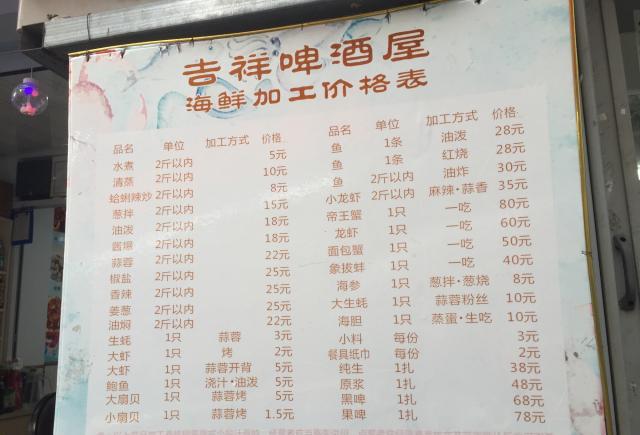 吉祥啤酒屋
海鲜加工价格表
品名 单位 加工方式 价格
水煮 2斤以内 5元
清蒸 2斤以内 10元
蛤蜊辣炒 2斤以内 8元
葱拌 2斤以内 15元
油泼 2斤以内 18元
酱爆 2斤以内 18元
蒜蓉 2斤以内 22元
椒盐 2斤以内 25元
香辣 2斤以内 25元
姜葱 2斤以内 25元
油焖 2斤以内 22元
生蚝 1只 蒜蓉 3元
大虾 1只 烤 2元
大虾 1只 蒜蓉开背 5元
鲍鱼 1只 浇汁·油泼 5元
大扇贝 1只 蒜蓉烤 5元
小扇贝 1只 蒜蓉烤 1.5元
品名 单位 加工方式 价格
鱼 1条 油泼 28元
鱼 1条 红烧 28元
鱼 2斤以内 油炸 30元
小龙虾 2斤以内 麻辣·蒜香 35元
帝王蟹 1只 一吃 80元
龙虾 1只 一吃 60元
面包蟹 1只 一吃 50元
象拔蚌 1只 一吃 40元
海参 1只 葱拌·葱烧 8元
大生蚝 1只 蒜蓉粉丝 10元
海胆 1只 蒸蛋·生吃 10元
小料 每份 3元
餐具纸巾 每份 2元
纯生 1扎 38元
原浆 1扎 48元
黑啤 1扎 68元
果啤 1扎 78元